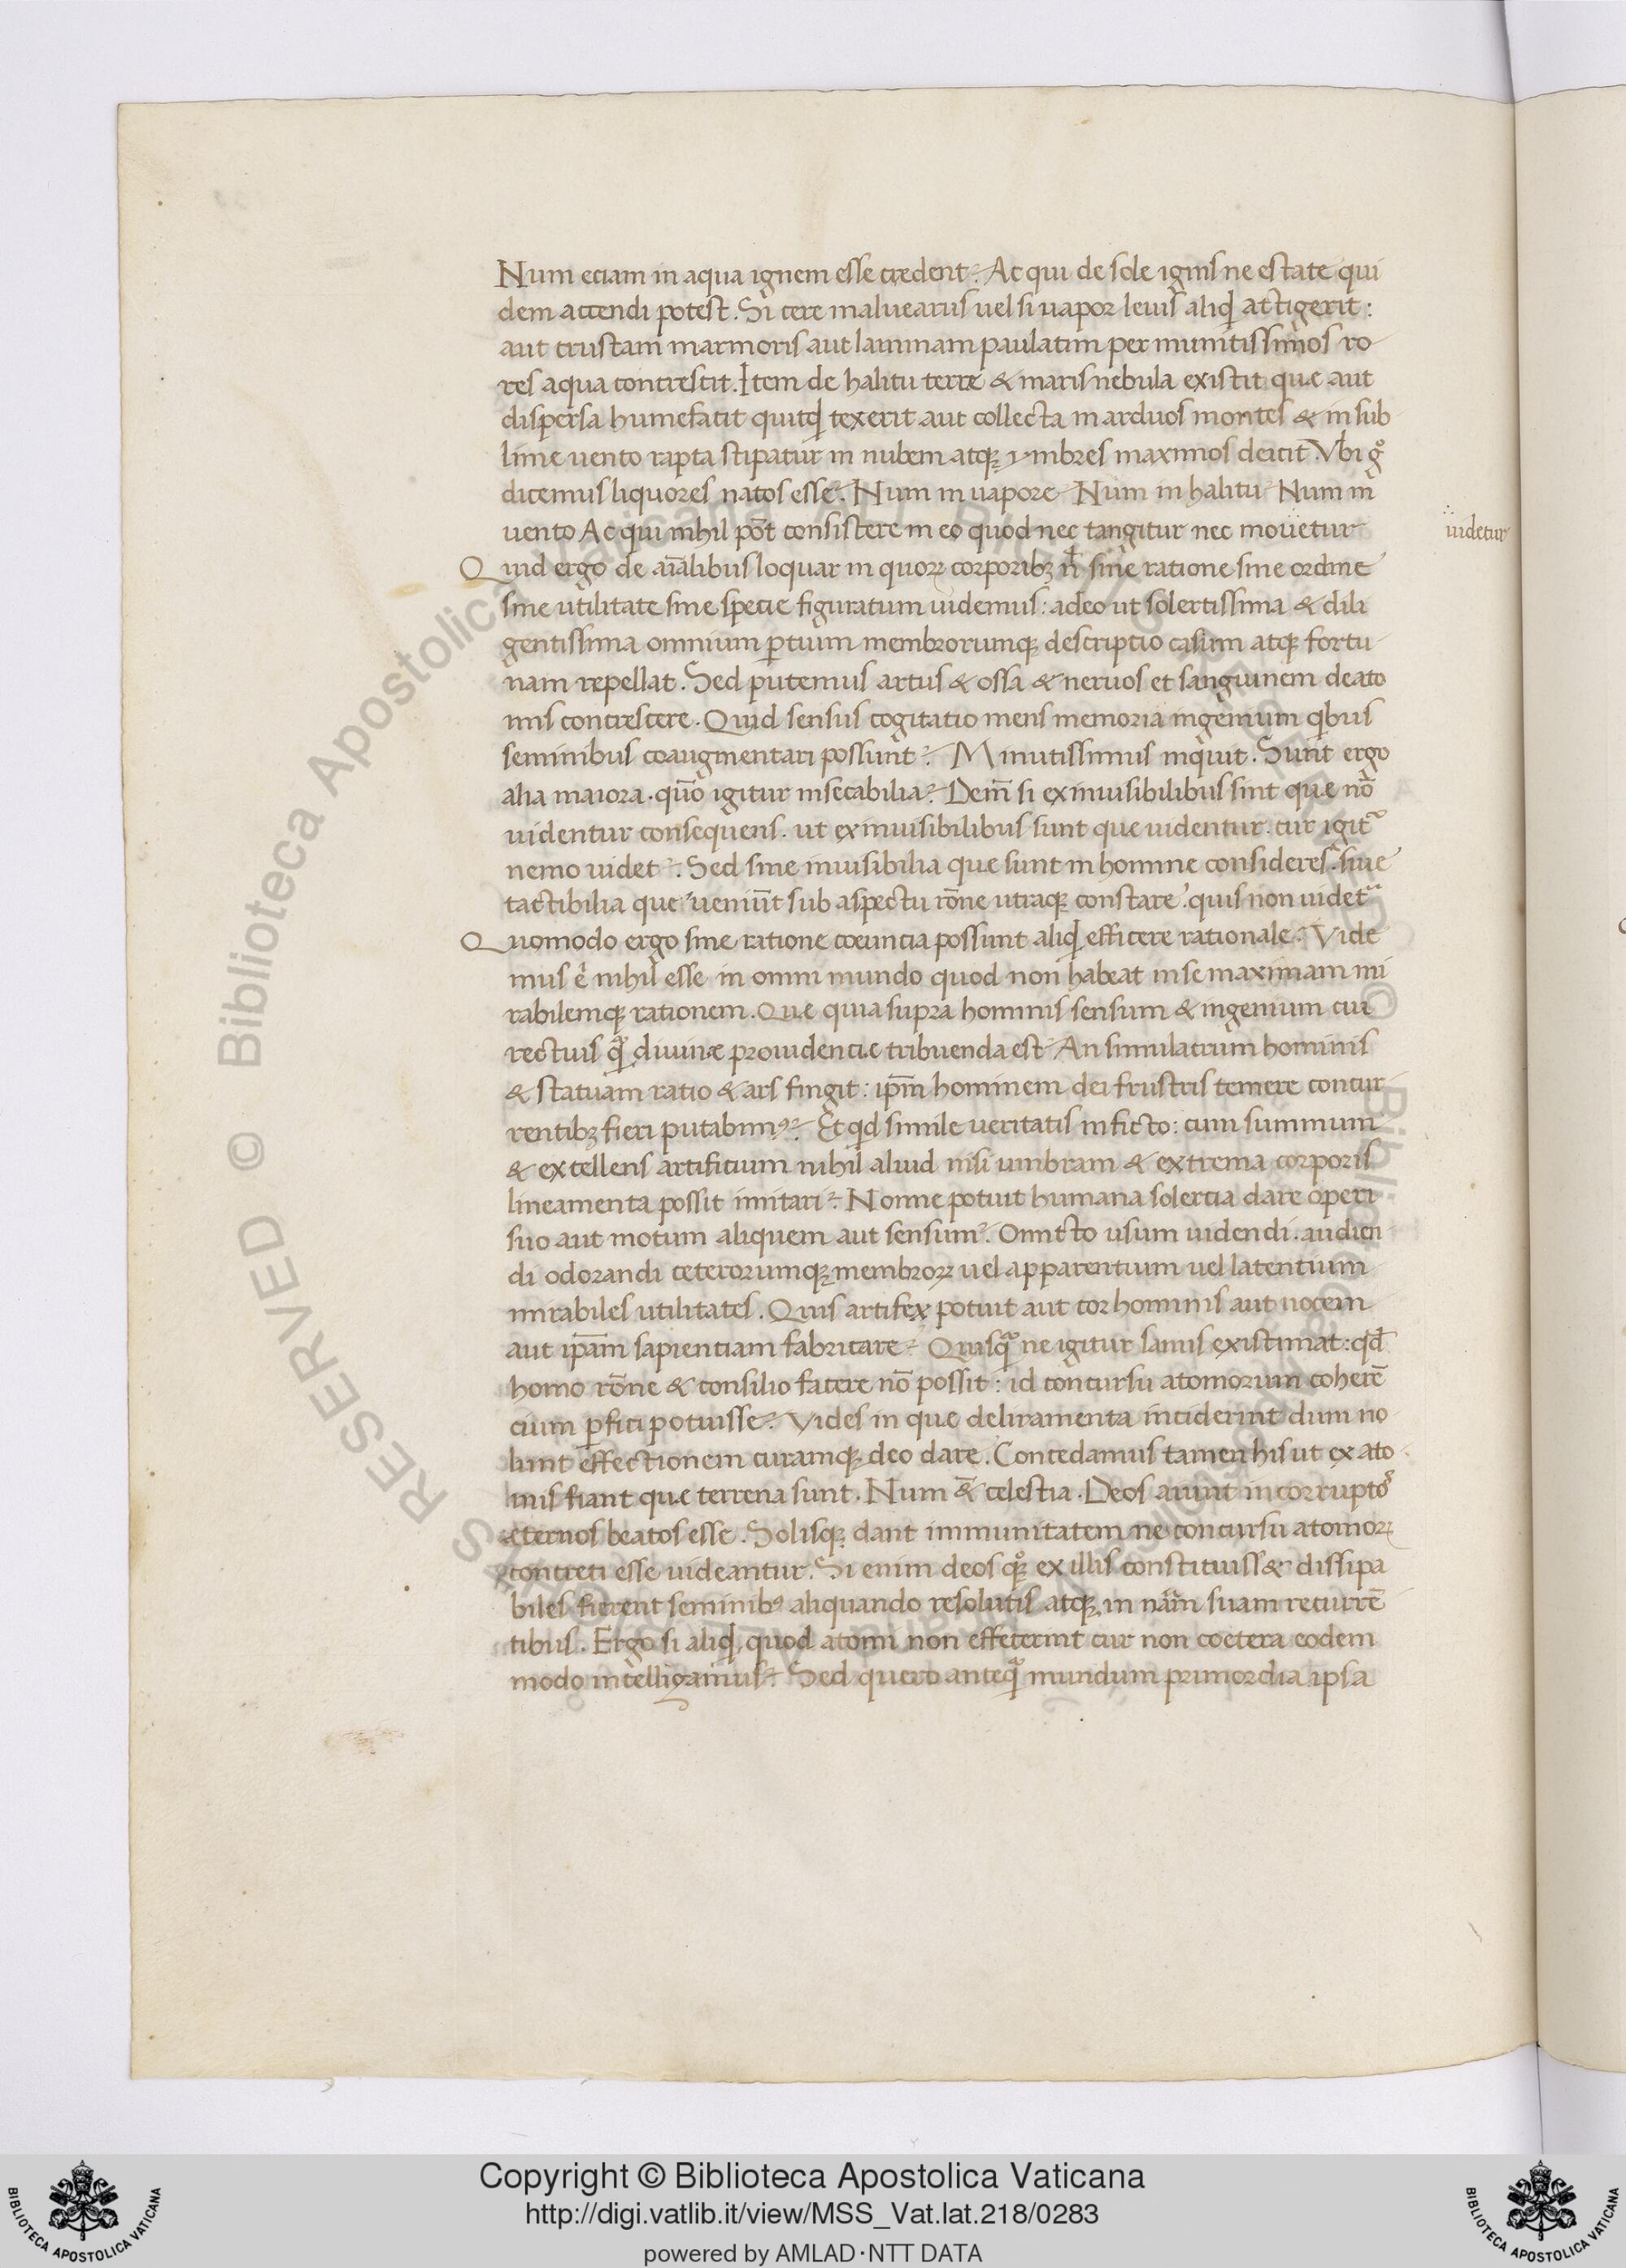 Num eciam in aqua ignem esse credent? Ac qui de sole ignis ne estate qui
dem accendi potest. Si cere maluearus uel si uapor leuis aliqd attigerit:
aut crustam marmoris aut laminam paulatim per munitissimos ro
res aqua concrescit. Item de halitu terre & maris nebula existit que aut
dispersa humefacit quicqd texerit aut collecta in arduos montes & in sub
lime uento rapta stipatur in nubem atq; ymbres maximos deicit. Vbi gͦ
dicemus liquores natos esse? Num in uapore? Num in halitu? Num in
uento Ac qui nihil pōt consistere in eo quod nec tangitur nec mouetur
uidetur
Quid ergo de aīalibus loquar in quoꝝ corporibꝫ n̄ sine ratione sine ordine
sine utilitate sine specie figuratum uidemus: adeo ut solertissima & dili
gentissima omnium ꝑtium membrorumq; descriptio casum atq; fortu
nam repellat. Sed putemus artus & ossa & neruos et sanguinem de ato
mis concrescere. Quid sensus cogitatio mens memoria ingenium qbus
seminibus coaugmentari possunt? Minutissimus inquit. Sunt ergo
alia maiora. quō igitur insecabilia? Dem̄ si ex inuisibilibus sint que nō
uidentur consequens. ut ex inuisibilibus sunt que uidentur. cur igit᷑
nemo uidet? Sed siue inuisibilia que sunt in homine consideres. siue
tactibilia que ueniūt sub aspectu rōne utraq; constare. quis non uidet᷑
Quomodo ergo sine ratione coeuncia possunt aliqd efficere rationale? Vide
mus .n. nihil esse in omni mundo quod non habeat in se maximam mi
rabilemq; rationem. Que quia supra hominis sensum & ingenium cui
rectuis qͣ̄ diuinæ prouidencie tribuenda est? An simulacrum hominis
& statuam ratio & ars fingit: ip̄m hominem dei frustris temere concur
rentibꝫ fieri putabimꝰ? Et qd simile ueritatis in ficto: cum summum
& excellens artificium nihil aliud nisi umbram & extrema corporis
lineamenta possit imitari? Nonne potuit humana solercia dare operi
suo aut motum aliquem aut sensum? Omicto usum uidendi. audien
di odorandi ceterorumq; membroꝝ uel apparentium uel latentium
mirabiles utilitates. Quis artifex potuit aut cor hominis aut uocem
aut ip̄am sapienciam fabricare? Quisqͣ̄ ne igitur sanus existimat: qd̄
homo rōne & consilio facere nō possit: id concursu atomorum coherē
cium ꝑfici potuisse? Vides in que deliramenta inciderint dum no
lunt effectionem curamq; deo dare. Concedamus tamen his ut ex ato
mis fiant que terrena sunt. Num &̄ celestia. Deos aiunt incorruptoˢ
eternos beatos esse. Solisq; dant immunitatem ne concursu atomoꝝ
concreti esse uideantur. Si enim deos qꝫͦ ex illis constituiss& dissipa
biles fierent seminibꝰ aliquando resolutis atq; in nām suam recurrē
tibus. Ergo si aliqd quod atomi non effecerint cur non coetera eodem
modo intelligamus? Sed quero anteqͣ̄ mundum primordia ipsa
RESERVED © Biblioteca Apostolica Vaticana
Copyright © Biblioteca Apostolica Vaticana
http://digi.vatlib.it/view/MSS_Vat.lat.218/0283
powered by AMLAD·NTT DATA
BIBLIOTECA APOSTOLICA VATICANA
BIBLIOTECA APOSTOLICA VATICANA